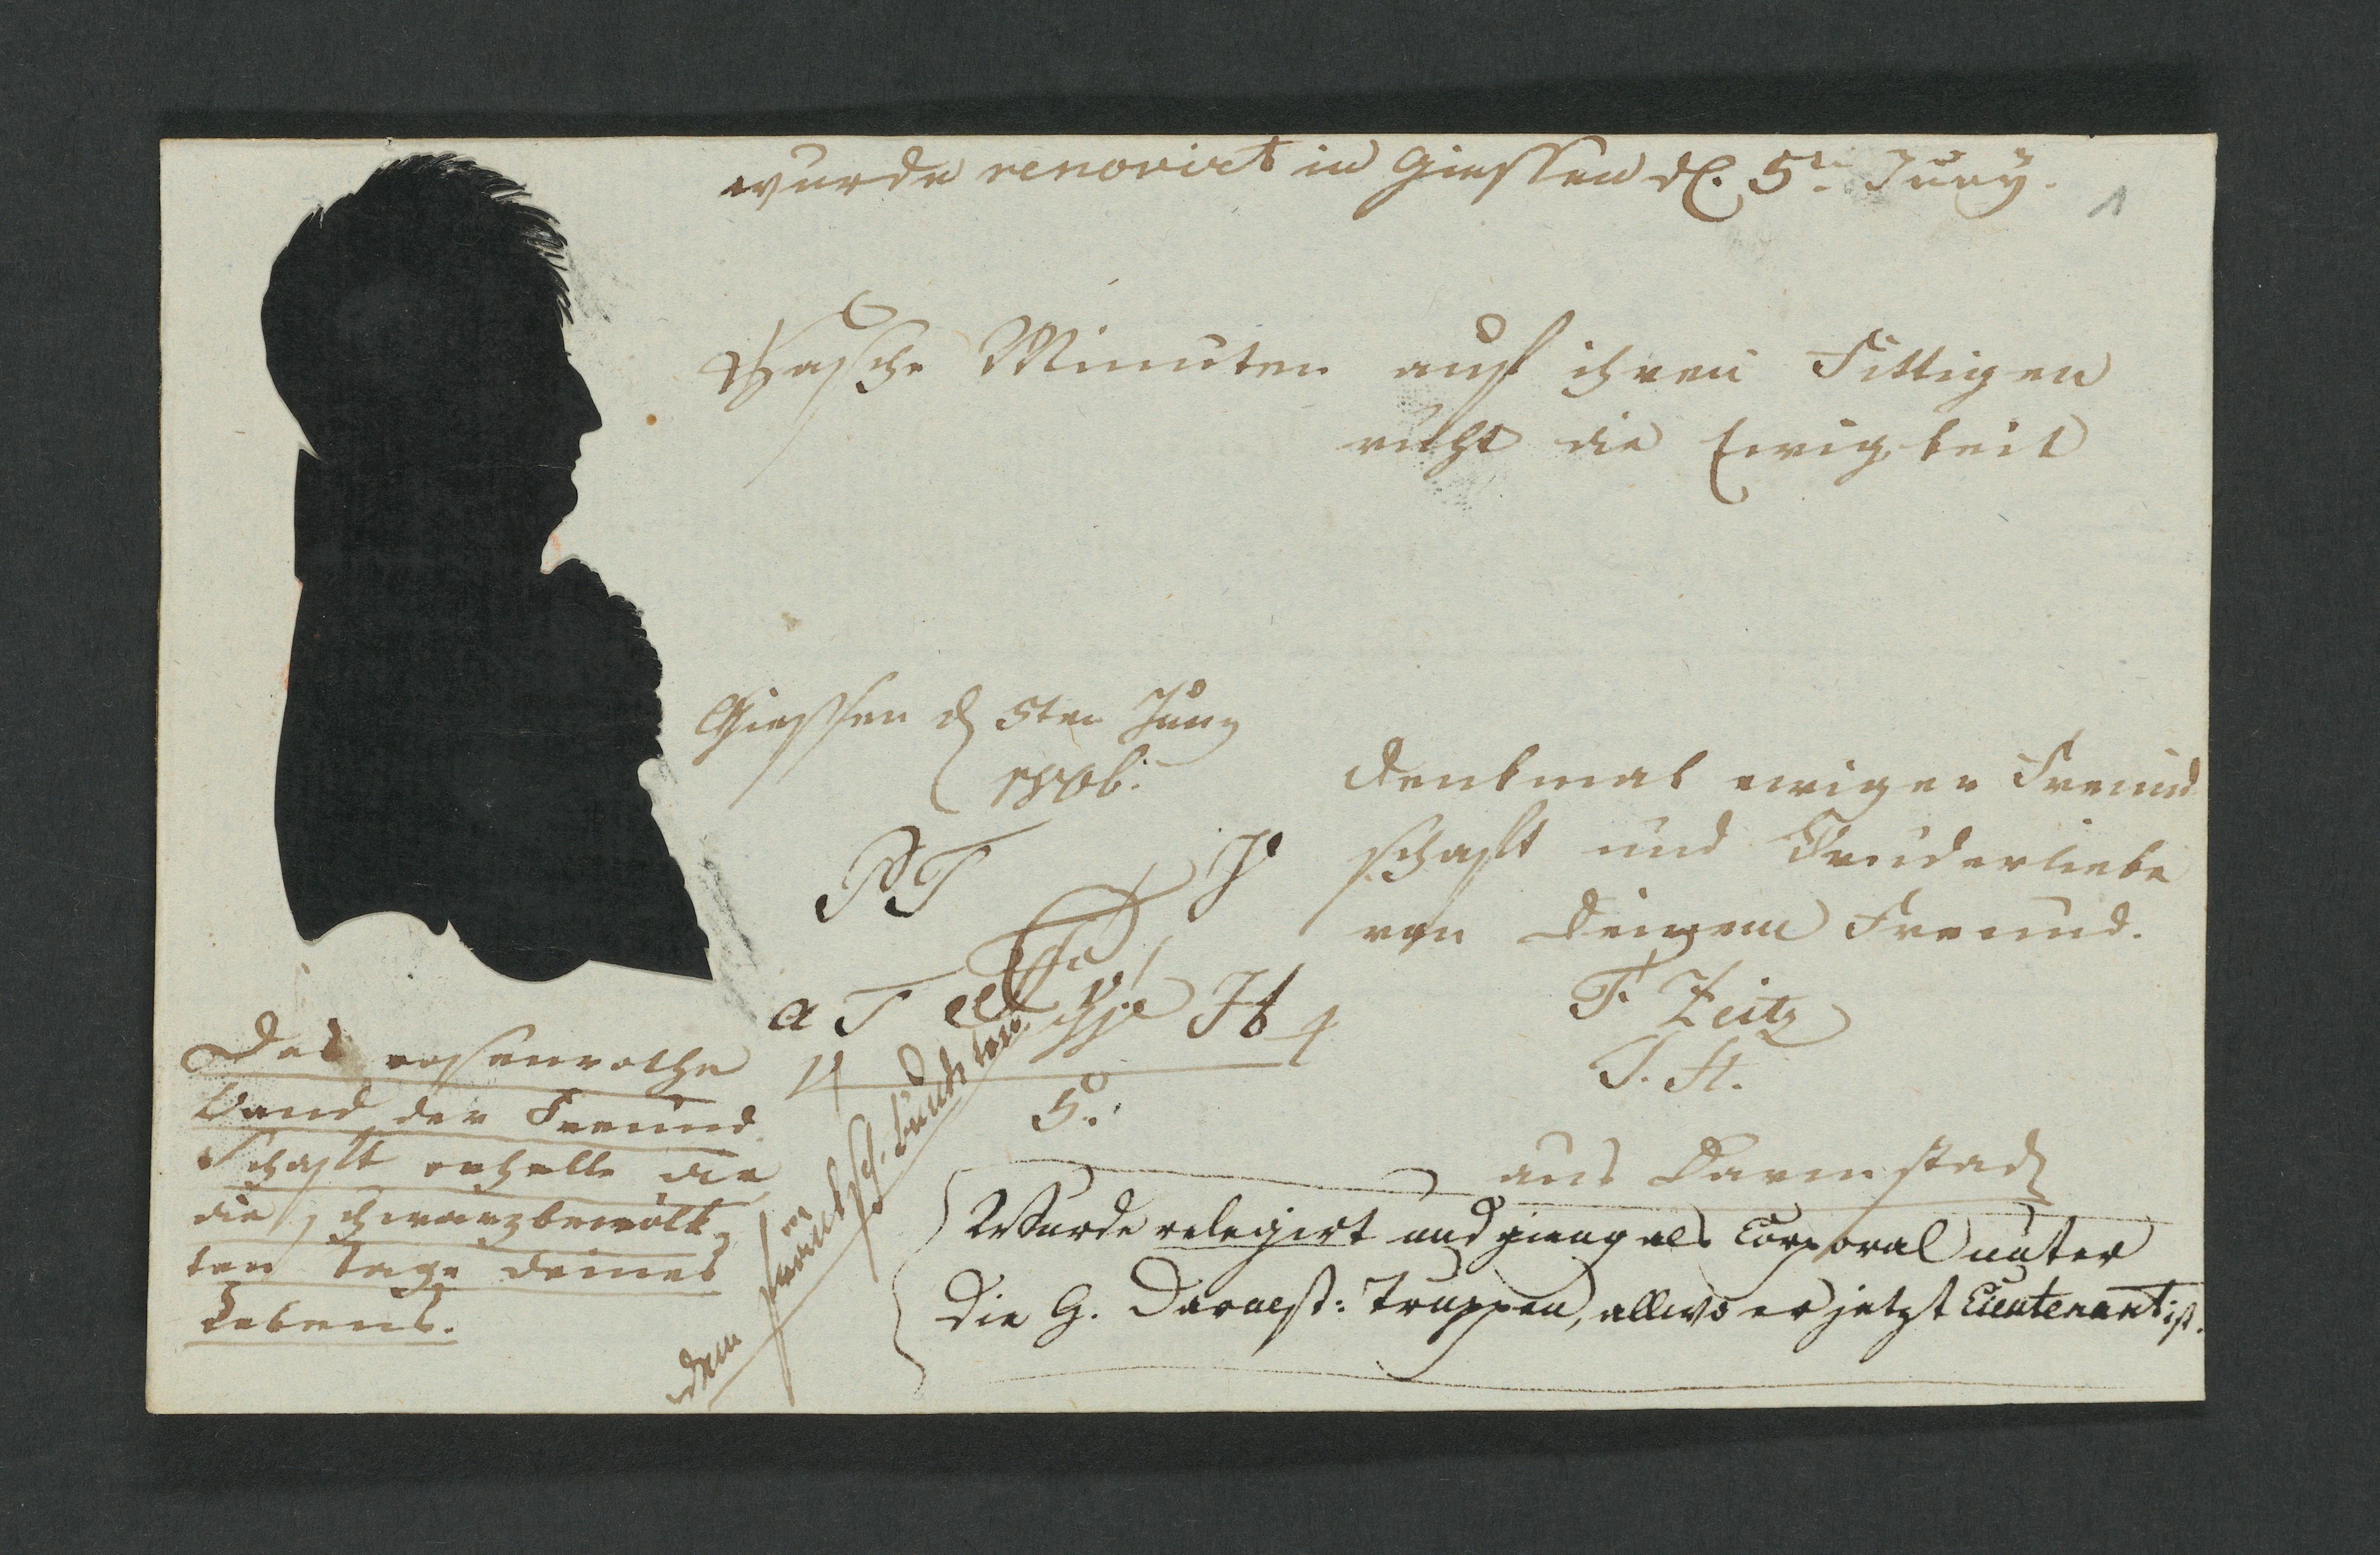 wurde renovirt in Giessen d. 5n Juny.
1
Rasche Minuten auf ihren Fittigen
ruht die Ewigkeit
Giessen d 5ten Juny
Denkmal ewiger Freund
schaft und Bruderliebe
von Deinem Freund.
F. Zeitz
aus Darmstadt
Das rosenrothe
Band der Freund
schaft erhelle die
die schwarzbewölk-
ten Tage deines
Lebens.
Wurde relegirt und gieng als Corporal unter
die G. Darmst: Truppen, allwo er jetzt Lieutenant ist.